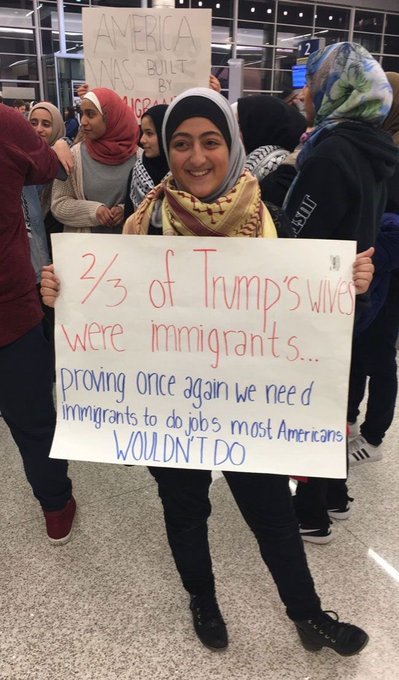 AMERICA
WAS BUILT
BY
IMMIGRANTS
2
2/3 of Trump's wives
were immigrants...
proving once again we need
immigrants to do jobs most Americans
WOULDN'T DO